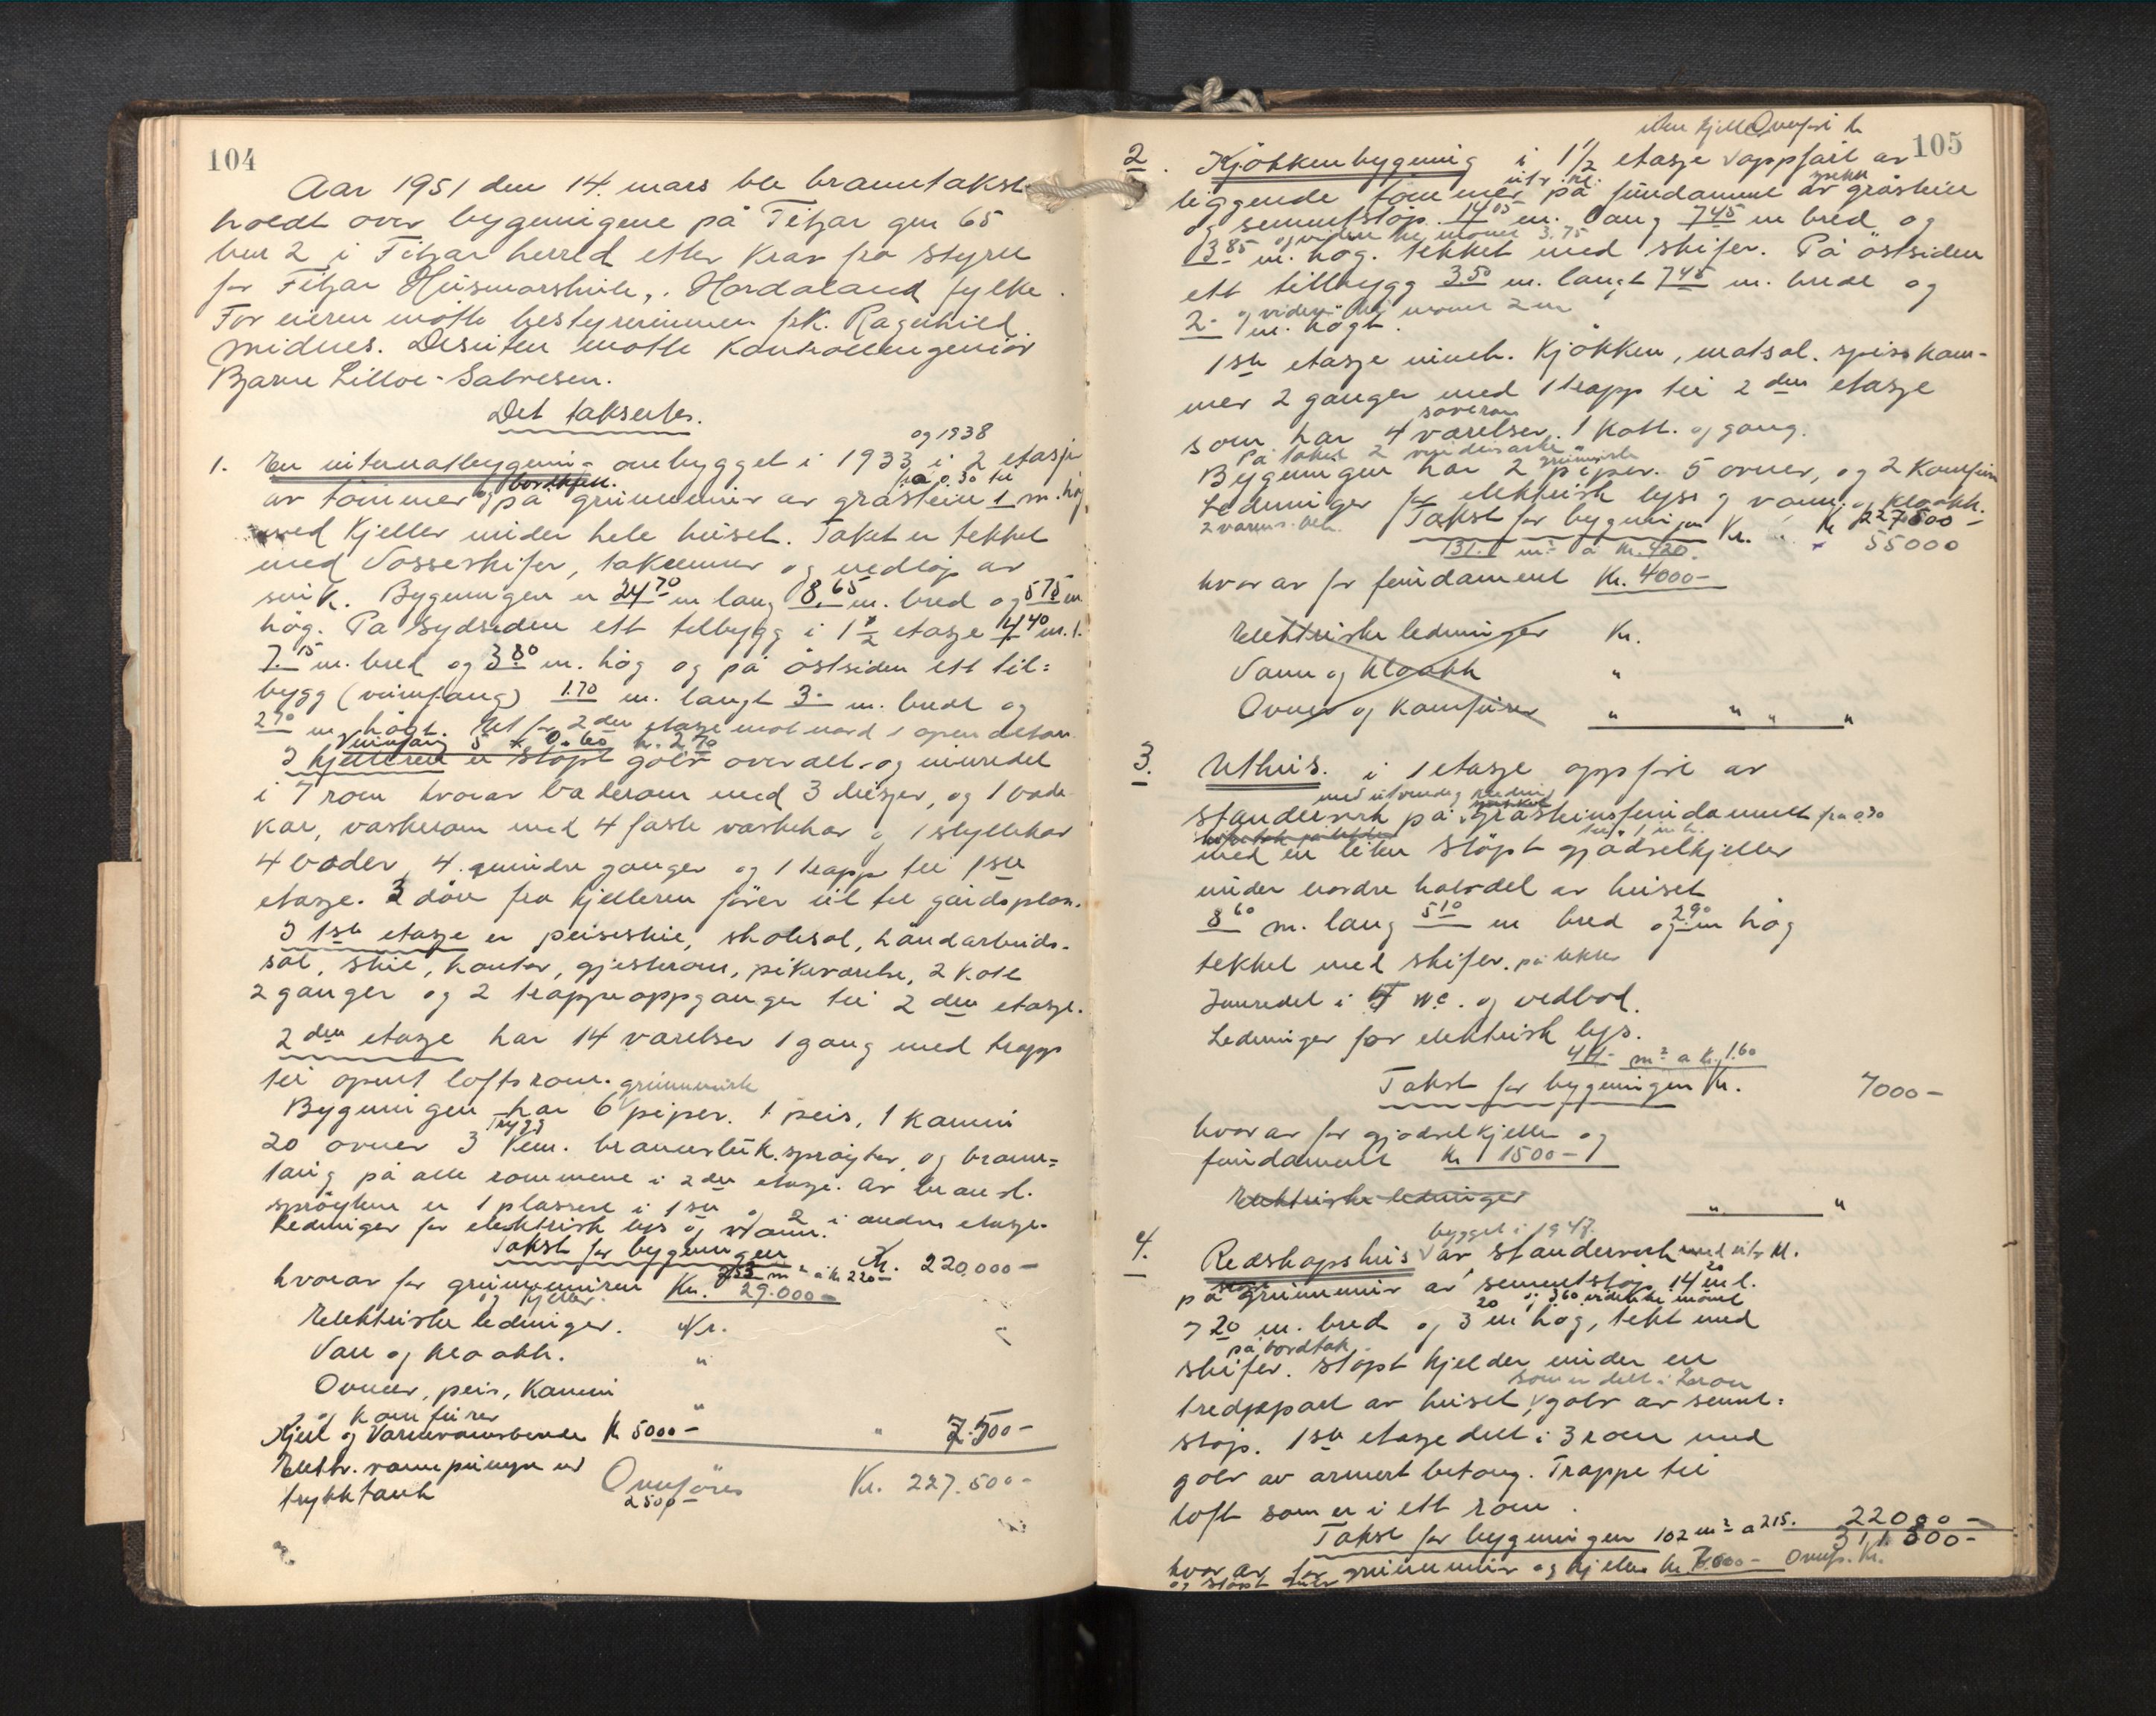 104
Aar 1951 den 14. mars ble branntakst
holdt over bygningene på Fitjar gnr 65
bnr 2 i Fitjar herred etter krav fra styret
for Fitjar Husmorskule, Hordaland fylke.
For eieren møtte bestyrerinnen frk. Ragnhild
Midnes. Desuten møtte kontrollingeniør
Bjarne Lilloe-Salvesen.
Det taksertes.
og 1938
1. En internatbygning ombygget i 1933 i 2 etasje
og bordkledn. fra 0.30 til
av tømmer på grunnmur av gråstein 1 m. høg
med kjeller under hele huset. Taket er tekket
med Vosseskifer, takrenner og nedløp av
sink. Bygningen er 24 70 m lang 8,65 m. bred og 5 75 m
høg. På sydsiden ett tilbygg i 1 1/2 etasje 4 40 m. l.
7. 15 m. bred og 3 80 m. høg og på østsiden ett til=
bygg (vinnfang) 1.70 m. langt 3.- m. bredt og
2 70 m høgt. Ut fra 2 den etasje mot nord 1 open altan
Vinnfang 5 x 0.60 h. 2,70
I kjelleren er støpt golv overalt og innredet
i 7 rom hvorav baderom med 3 dusjer, og 1 bade
kar, vaskerom med 4 faste vaskekar og 1 skyllekar
4 boder, 4 mindre ganger og 1 trapp til 1ste
etasje. 3 dører fra kjelleren fører ut til gårdsplan.
I 1ste etasje er peisestue, skolesal, håndarbeids-
sal, stue, kontor, gjesterom, pikeværelse, 2 kott
2 ganger og 2 trappeoppganger til 2 den etasje.
2 den etasje har 14 værelser 1 gang med trapp
til opent loftsrom.
grunnmurte
Bygningen har 6 piper. 1 peis, 1 kamin
Trygg
20 ovner 3 kem. brannslukk.sprøyter, og brann=
taug på alle rommene i 2 den etasje. Av bransl.
sprøytene er 1 plassert i 1ste og 2 i anden etasje.
Ledninger for elektrisk lys og vann.
Takst for bygningen Kr. 220.000-
253 m² à kr 220-
hvorav for grunnmuren Kr. 29.000-
og kjeller.
Elektriske ledninger. Kr.
Van og kloakk. "
Ovner, peis, kamin
og komfurer "
Kjel og varmtvannsbereder Kr 5000- " 7.500-
Elektr. vannpumpe med
trykktank 2500- Overføres Kr. 227.500-
105
uten kjeller Overført kr
2. Kjøkkenbygning i 1 1/2 etasje oppført av
utv. kl.
liggende tømmer på fundament av gråstein
og sementstøp 14 05 m. lang 7 45 m bred og
3 85 m. høg. tekket med skifer. På østsiden
ett tilbygg 3 50 m. langt 7 45 m. bredt og
2.- m. høgt.
1ste etasje inneh. kjøkken, matsal, spiskam-
mer 2 ganger med 1 trapp til 2 den etasje
soverom
som har 4 værelser. 1 kott. og gang.
På taket 2
grunnmurte
Bygningen har 2 piper. 5 ovner, og 2 komfurer
Ledninger for elektrisk lys og vann. og kloakk.
Takst for bygningen Kr. Kr 227500-
55000
131.1 m² à Kr. 420.
hvorav for fundament Kr. 4000-
Elektriske ledninger Kr.
Vann og kloakk "
Ovner og komfurer " " " "
3. Uthus. i 1 etasje oppført av
med utvendig kledning
standerverk på gråsteinsfundament fra 0.30
til 1 m h.
med en liten støpt gjødselkjeller
under nordre halvdel av huset
8 60 m. lang 5 10 m bred og 2 90 m høg
tekket med skifer. på lekter
Innredet i 4 WC. og vedbod.
Ledninger for elektrisk lys.
44- m² a kr. 160
Takst for bygningen Kr. 7000-
hvorav for gjødselkjeller og
fundament Kr 1500-
Elektriske ledninger " "
bygget i 1947.
4. Redskapshus av standerverk med utv kl.
på grunnmur av sementstøp 14 20 m l.
7 20 m. bred og 3 20 m høg, tekt med
på bordtak
skifer. støpt kjelder under en
som er delt i 2 rom
tredjepart av huset, golv av sement=
støp. 1ste etasje delt i 3 rom med
golv av armert betong. Trappe til
loft som er i ett rom.
Takst for bygningen 102 m² a 215. 22000-
hvorav for grunnmur og kjeller kr 7000- Overf. Kr. 311.500-
og støpt gulv